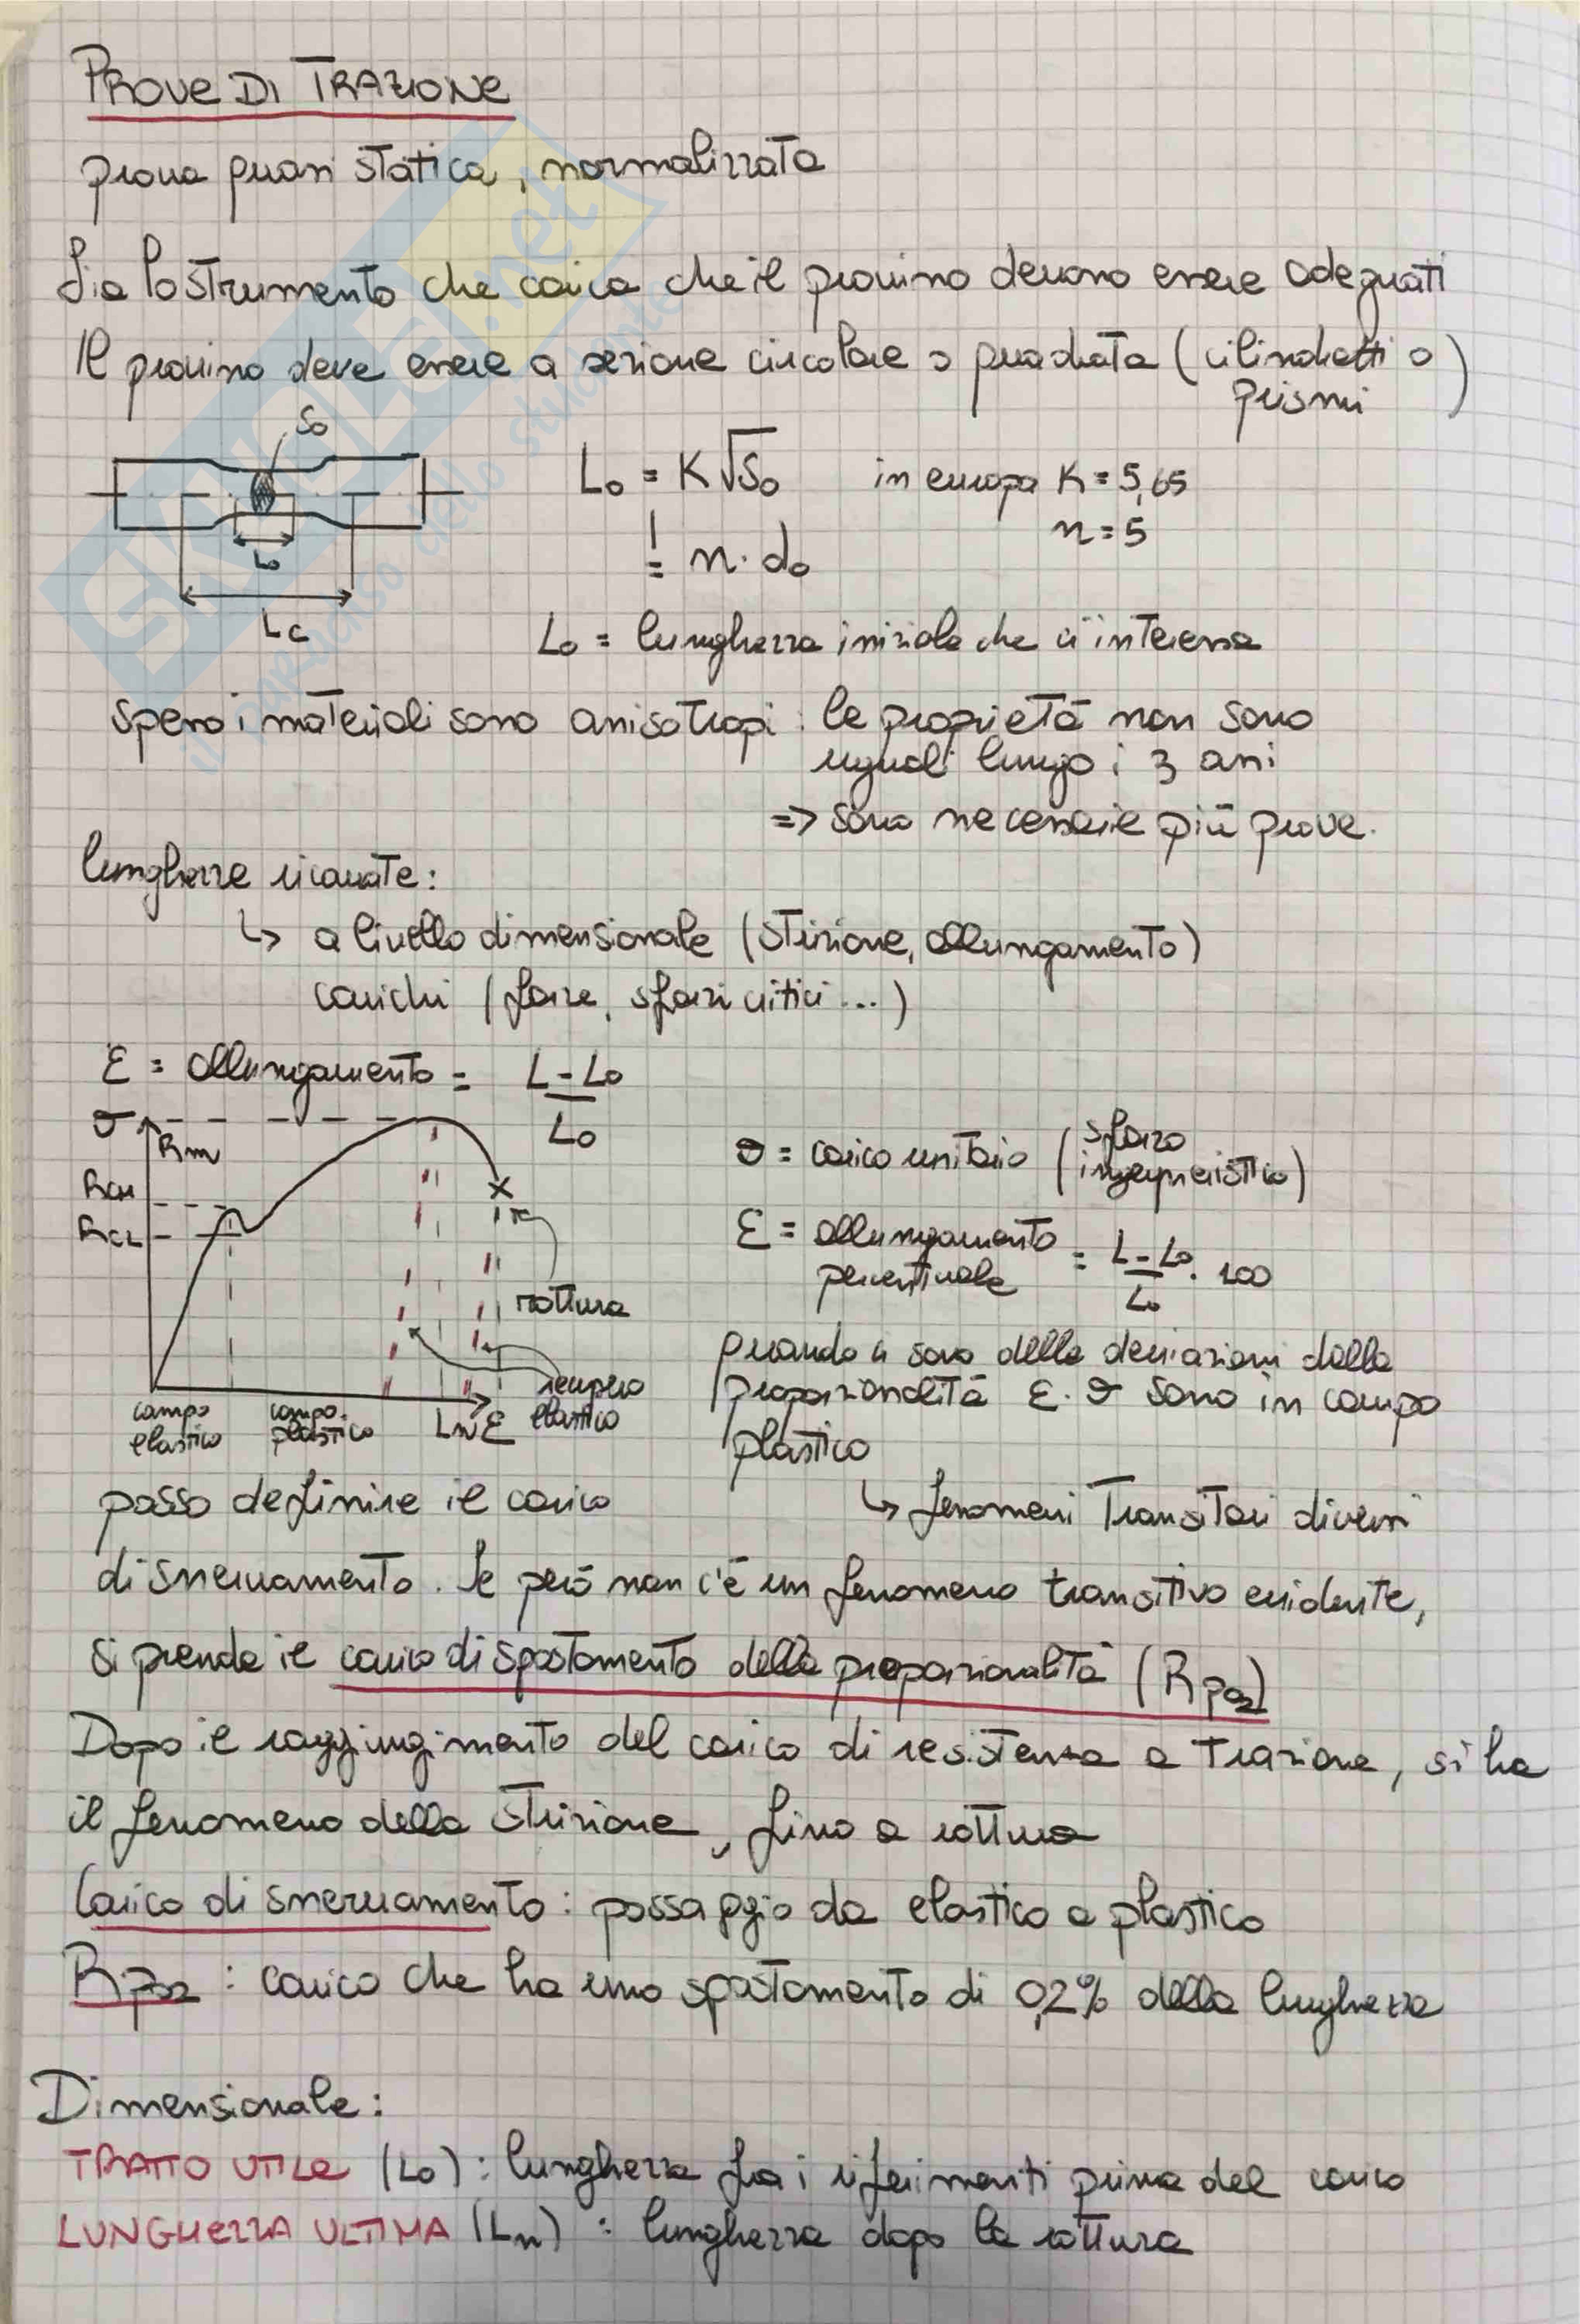 PROVE DI TRAZIONE
prova quasi statica, normalizzata
Sia lo strumento che carica che il provino devono essere adeguati
Il provino deve essere a sezione circolare o quadrata (cilindretti o prismi)
S₀
L₀ = K√S₀ in europa K = 5,65
n = 5
= n · d₀
L₀
Lc
L₀ = lunghezza iniziale che ci interessa
spesso i materiali sono anisotropi : le proprietà non sono
uguali lungo i 3 assi
=> sono necessarie più prove.
lunghezze ricavate:
↳ a livello dimensionale (strizione, allungamento)
carichi (forze, sforzi critici ...)
ε = allungamento = L - L₀ / L₀
σ
Rm
ReH
ReL
rottura
recupero elastico
campo elastico
campo plastico
Ln
ε
σ = carico unitario (sforzo ingegneristico)
ε = allungamento percentuale = L - L₀ / L₀ · 100
quando ci sono delle deviazioni dalla
proporzionalità ε · σ sono in campo
plastico
↳ fenomeni transitori diversi
posso definire il carico
di snervamento. Se però non c'è un fenomeno transitivo evidente,
si prende il carico di spostamento della proporzionalità (Rp02)
Dopo il raggiungimento del carico di resistenza a trazione, si ha
il fenomeno della strizione, fino a rottura
Carico di snervamento : passaggio da elastico a plastico
Rp02 : carico che ha uno spostamento di 0,2% della lunghezza
Dimensionale :
TRATTO UTILE (L₀) : lunghezza fra i riferimenti prima del carico
LUNGHEZZA ULTIMA (Ln) : lunghezza dopo la rottura
SKUOLA.net
il paradiso dello studente